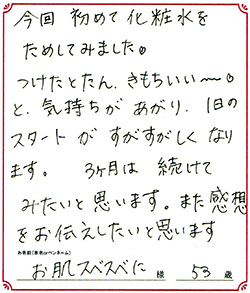 今回 初めて化粧水を
ためしてみました。
つけたとたん、きもちいい〜〜。
と、気持ちがあがり、1日の
スタートが すがすがしくなり
ます。 3ヶ月は 続けて
みたいと思います。また感想
をお伝えしたいと思います
お名前(本名orペンネーム)
お肌スベスベに 様 53 歳